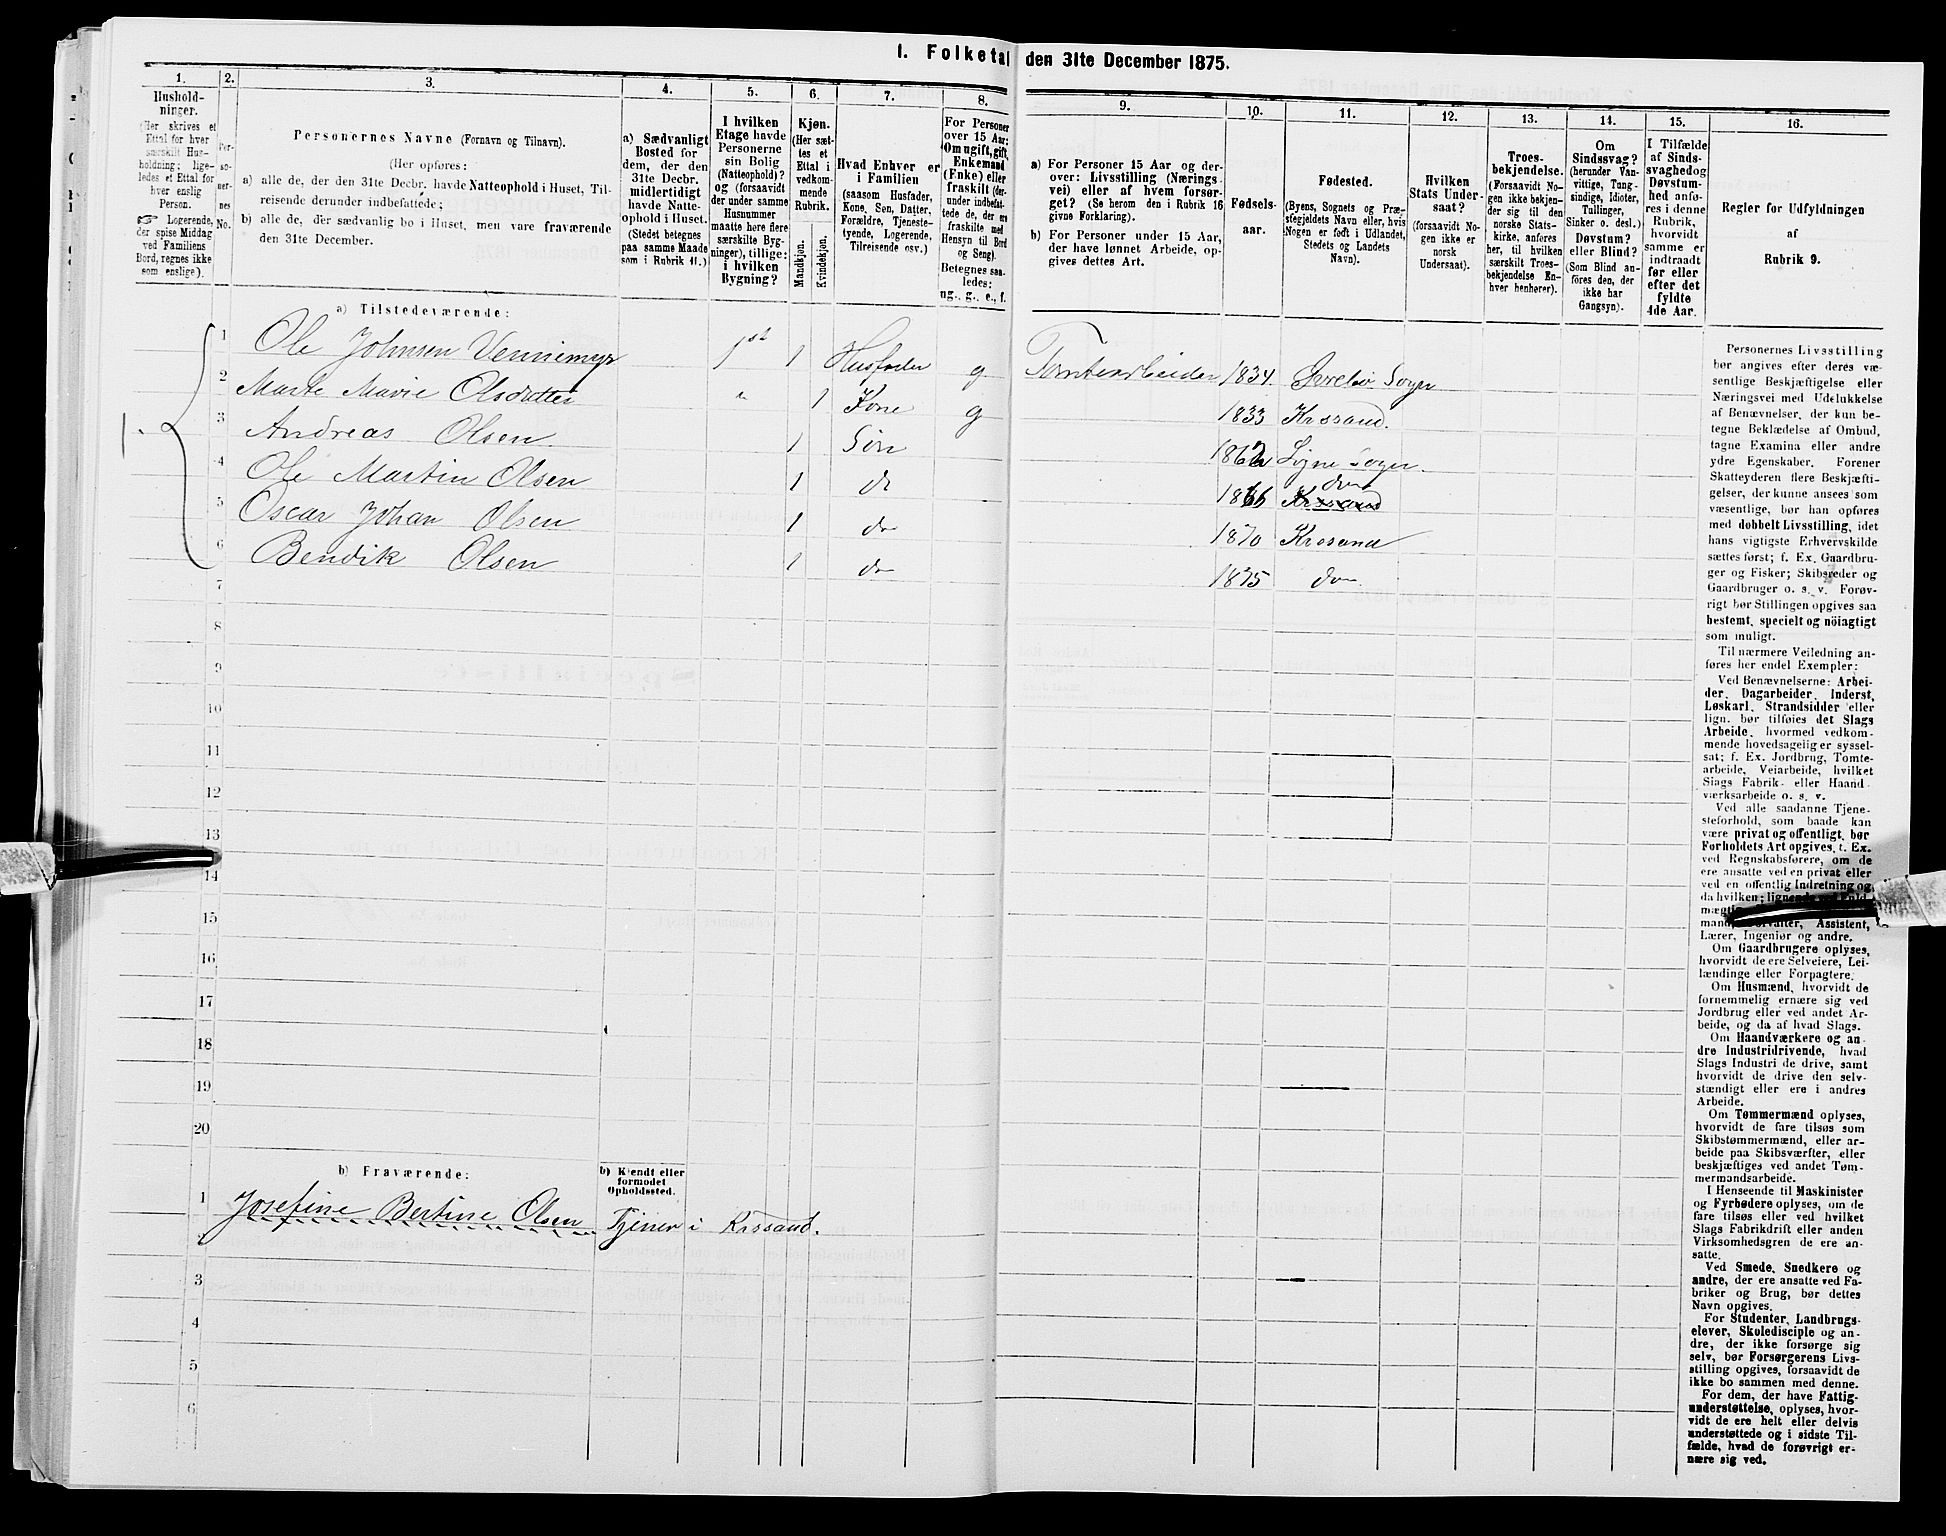 I. Folketal den 31te December 1875.
1. 2. 3. 4. 5. 6. 7. 8. 9. 10. 11. 12. 13. 14. 15. 16.
Hushold-
ninger.
(Her skrives et
Ettal for hver
særskilt Hus-
holdning; lige-
ledes et Ettal for
hver enslig
Person.
☞ Logerende,
der spise Middag
ved Familiens
Bord, regnes ikke
som enslige).
Per-
so-
ner-
nes
No.
Personernes Navne (Fornavn og Tilnavn).
(Her opføres:
a) alle de, der den 31te Decbr. havde Natteophold i Huset, Til-
reisende derunder indbefattede;
b) alle de, der sædvanlig bo i Huset, men vare fraværende
den 31te December.
a) Sædvanligt
Bosted for
dem, der den
31te Decbr.
midlertidigt
havde Natte-
ophold i Huset.
(Stedet betegnes
paa samme Maade
som i Rubrik 11.)
I hvilken
Etage havde
Personerne
sin Bolig
(Natteophold)?
og (forsaavidt
der under samme
Husnummer
maatte høre flere
særskilte Byg-
ninger), tillige:
i hvilken
Bygning?
Kjøn.
(Her sæt-
tes et
Ettal i
vedkom-
mende
Rubrik.
Mandkjøn.
Kvindekjøn.
Hvad Enhver er
i Familien
(saasom Husfader,
Kone, Søn, Datter,
Forældre, Tjeneste-
tyende, Logerende,
Tilreisende osv.)
For Personer
over 15 Aar:
Om ugift, gift,
Enkemand
(Enke) eller
fraskilt (der-
under indbefat-
tede de, der ere
fraskilte med
Hensyn til Bord
og Seng).
Betegnes saa-
ledes:
ug., g., e., f.
a) For Personer 15 Aar og der-
over: Livsstilling (Nærings-
vei) eller af hvem forsør-
get? (Se herom den i Rubrik 16
givne Forklaring).
b) For Personer under 15 Aar,
der have lønnet Arbeide, op-
gives dettes Art.
Fødsels-
aar.
Fødested.
(Byens, Sognets og Præ-
stegjeldets Navn eller, hvis
Nogen er født i Udlandet,
Stedets og Landets
Navn).
Hvilken
Stats Under-
saat?
(forsaavidt No-
gen ikke er
norsk
Undersaat).
Troes-
bekjendelse.
(Forsaavidt No-
gen ikke bekjen-
der sig til den
norske Stats-
kirke, anføres
her, til hvilken
særskilt Troes-
bekjendelse En-
hver henhører).
Om
Sindssvag?
(herunder Van-
vittige, Tung-
sindige, Idioter,
Tullinger,
Sinker o. desl.)
Døvstum?
eller Blind?
(Som Blind an-
föres den, der
ikke har
Gangsyn).
I Tilfælde
af Sinds-
svaghed og
Døvstum-
hed anfø-
res i denne
Rubrik,
hvorvidt
samme er
indtraadt
før eller
efter det
fyldte
4de Aar.
Regler for Udfyldningen
af
Rubrik 9.
a) Tilstedeværende:
1 Ole Johnsen Vennemyr 1st 1 Husfader g Tomtearbeider 1834 Øvrebø Sogn
2 Marte Marie Olsdatter " 1 Kone g 1833 Krssand.
3 Andreas Olsen 1 Søn 1862 Sogne Sogn.
4 Ole Martin Olsen 1 do 1866 Krssand do
5 Oscar Johan Olsen 1 do 1870 Krssand
6 Bendik Olsen 1 do 1875 do
1.
7
8
9
10
11
12
13
14
15
16
17
18
19
20
b) Fraværende:
b) Kjendt eller
formodet
Opholdssted.
1 Josefine Bertine Olsen Tjener i Krssand.
2
3
4
5
6
Personernes Livsstilling
bør angives efter deres væ-
sentlige Beskjæftigelse eller
Næringsvei med Udelukkelse
af Benævnelser, der kun be-
tegne Beklædelse af Ombud,
tagne Examina eller andre
ydre Egenskaber. Forener
Skatteyderen flere Beskjæfti-
gelser, der kunne ansees som
væsentlige, bør han opføres
med dobbelt Livsstilling, idet
hans vigtigste Erhvervskilde
sættes først; f. Ex. Gaardbru-
ger og Fisker; Skibsreder og
Gaardbruger o. s. v. Forøv-
rigt bør Stillingen opgives saa
bestemt, specielt og nöiagtigt
som muligt.
Til nærmere Veiledning an-
føres her endel Exempler:
Ved Benævnelserne: Arbei-
der, Dagarbeider, Inderst,
Løskarl, Strandsidder eller
lign. bør tilføies det Slags
Arbeide, hvormed vedkom-
mende hovedsagelig er syssel-
sat; f. Ex. Jordbrug, Tomte-
arbeide, Veiarbeide, hvilket
Slags Fabrik- eller Haand-
værksarbeide o. s. v.
Ved alle saadanne Tjene-
steforhold, som baade kan
være privat og offentligt, bør
Forholdets Art opgives, t. Ex.
ved Regnskabsførere, om de
ere ansatte ved en privat eller
ved en offentlig Indretning og
da hvilken; lignende ved Fuld-
mægtig,
mand, Forvalter, Assistent,
Lærer, Ingeniør og andre.
Om Gaardbrugere oplyses,
hvorvidt de ere Selveiere, Lei-
lændinge eller Forpagtere.
Om Husmænd, hvorvidt de
fornemmelig ernære sig ved
Jordbrug eller ved andet Ar-
beide, og da af hvad Slags.
Om Haandværkere og an-
dre Industridrivende, hvad
Slags Industri de drive, samt
hvorvidt de drive den selv-
stændigt eller ere i andres
Arbeide.
Om Tømmermænd oplyses,
hvorvidt de fare tilsøs som
Skibstømmermænd, eller ar-
beide paa Skibsværfter, eller
beskjæftiges ved andet Töm-
mermandsarbeide.
I Henseende til Maskinister
og Fyrbødere oplyses, om de
fare tilsøs eller ved hvilket
Slags Fabrikdrift eller anden
Virksomhedsgren de ere an-
satte.
Ved Smede, Snedkere og
andre, der ere ansatte ved Fa-
briker og Brug, bør dettes
Navn opgives.
For Studenter, Landbrugs-
elever, Skoledisciple og an-
dre, der ikke forsørge sig
selv, bør Forsørgerens Livs-
stilling opgives, forsaavidt de
ikke bo sammen med denne.
For dem, der have Fattig-
understøttelse, oplyses, hvor-
vidt de ere helt eller delvis
understøttede og i sidste Til-
fælde, hvad de forøvrigt er-
nære sig ved.